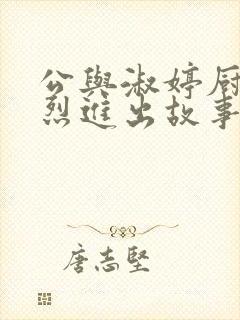 公與淑婷厨
烈進出故事
唐志堅